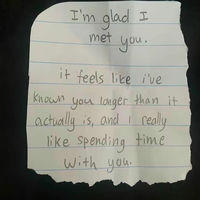 I'm glad I
met you.
it feels like i've
known you longer than it
actually is, and i really
like spending time
with you.